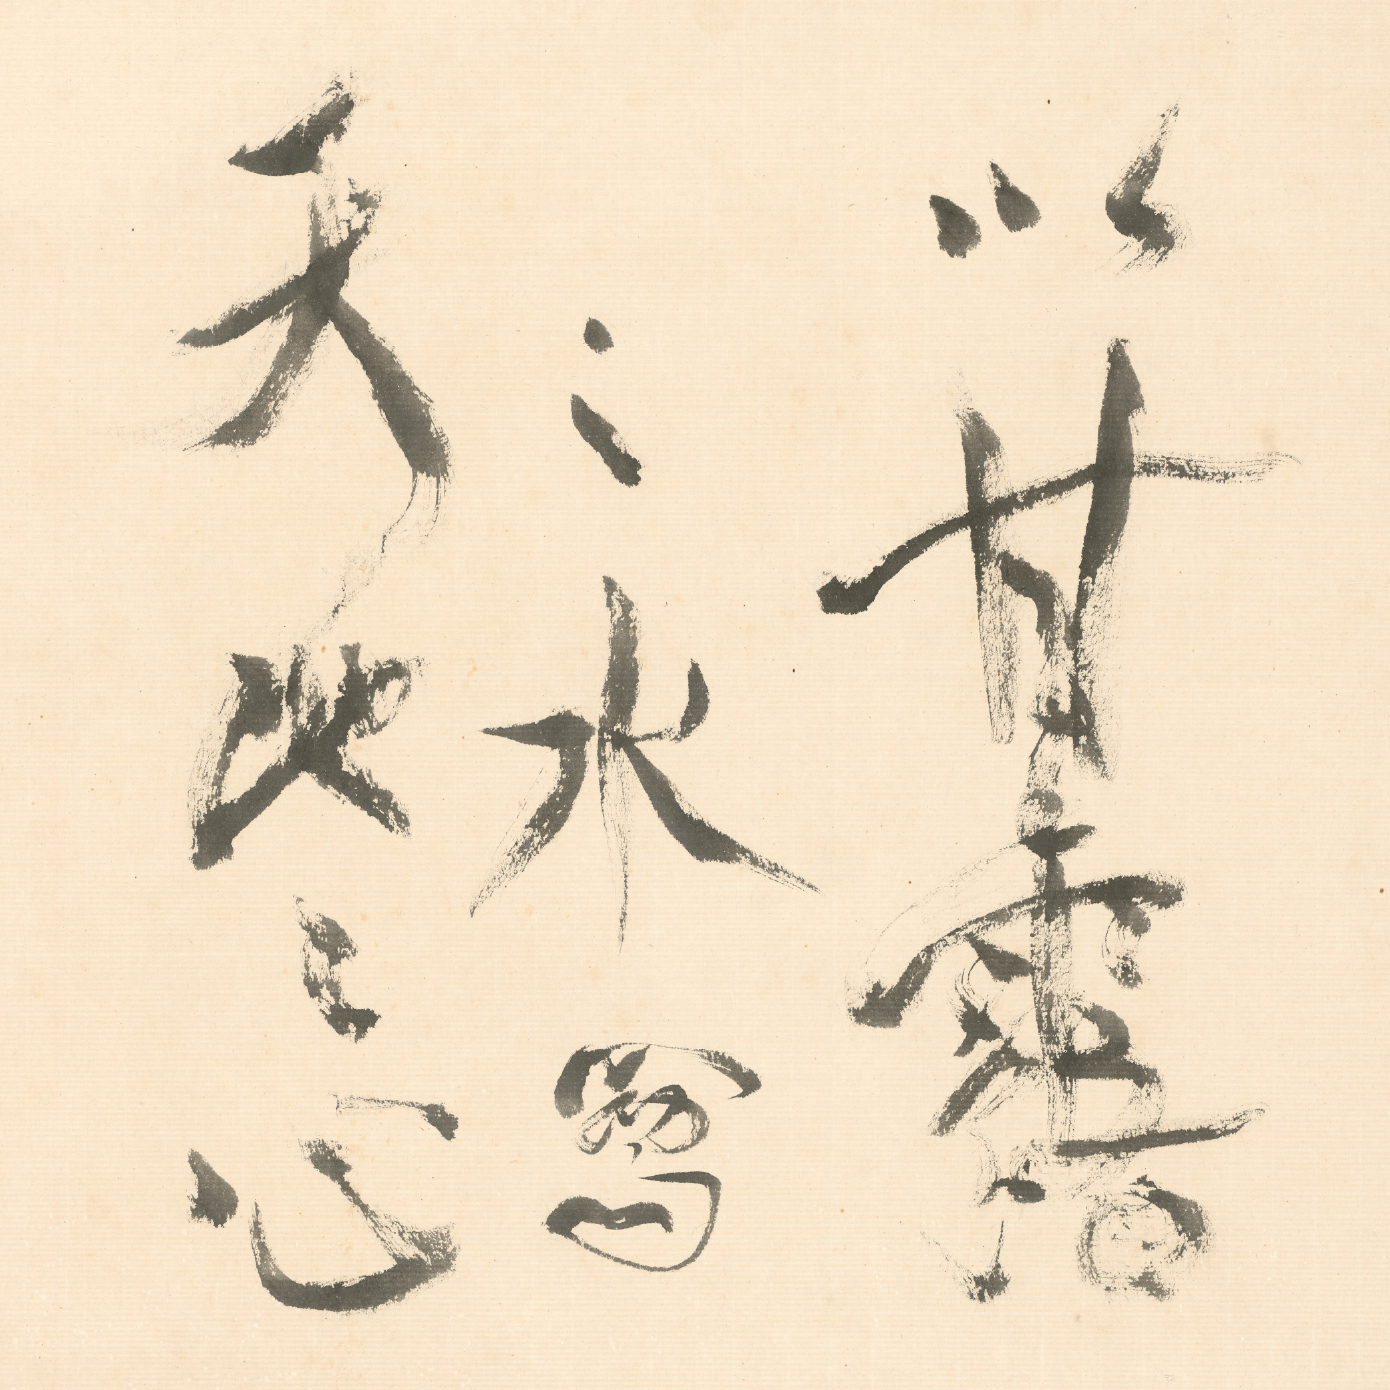 以甘露
之水寫
天地之心